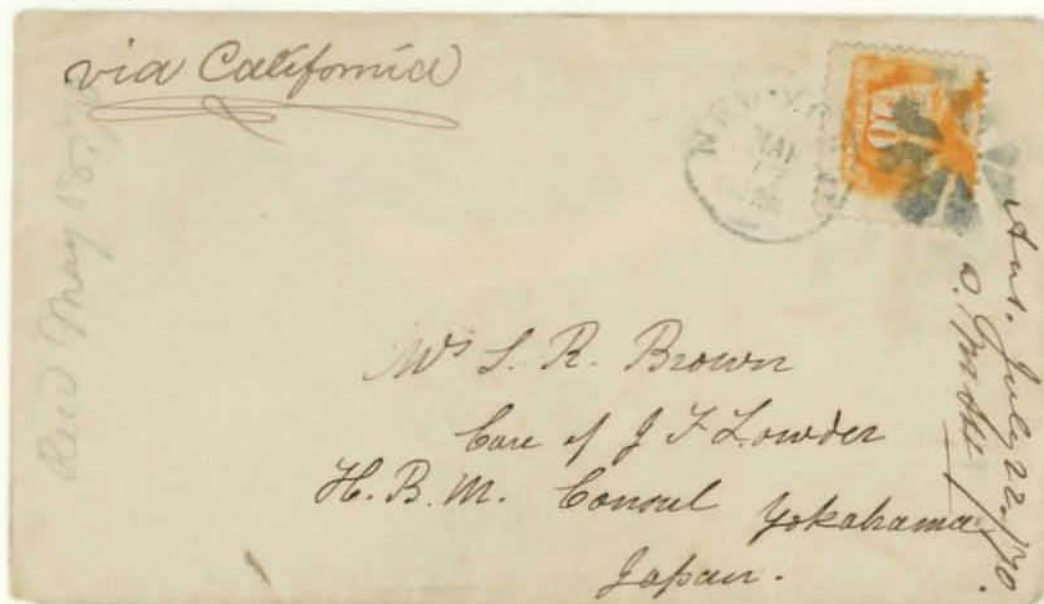 via California
Recd May 18
NEW YORK
10
Mrs S. R. Brown
Care of J F Lowder
H. B. M. Consul Yokahama
Japan.
Ans. July 22/70.